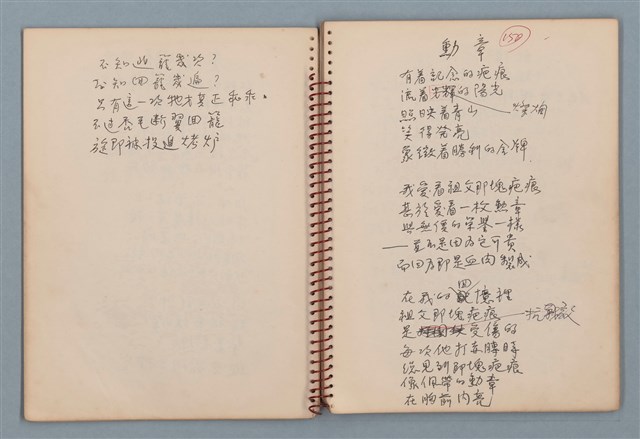 不知出籠幾次？
不知回籠幾遍？
只有這一次牠才真正乖乖。
不过禿毛斷翼回籠
旋即被投進烤炉
158
勳章
有着記念的疤痕
流着光輝的陽光
照映着青山
燦爛
笑得發亮
象徵着勝利的金牌
我愛看祖父那塊疤痕
甚於愛看一枚勳章
與無價的榮譽一樣
——並不是因為它可貴
而因為那是血肉製成
在我的回憶裡
祖父那塊疤痕
是受傷的
每次他打赤膊時
總見到那塊疤痕
像佩帶的勳章
在胸前闪亮